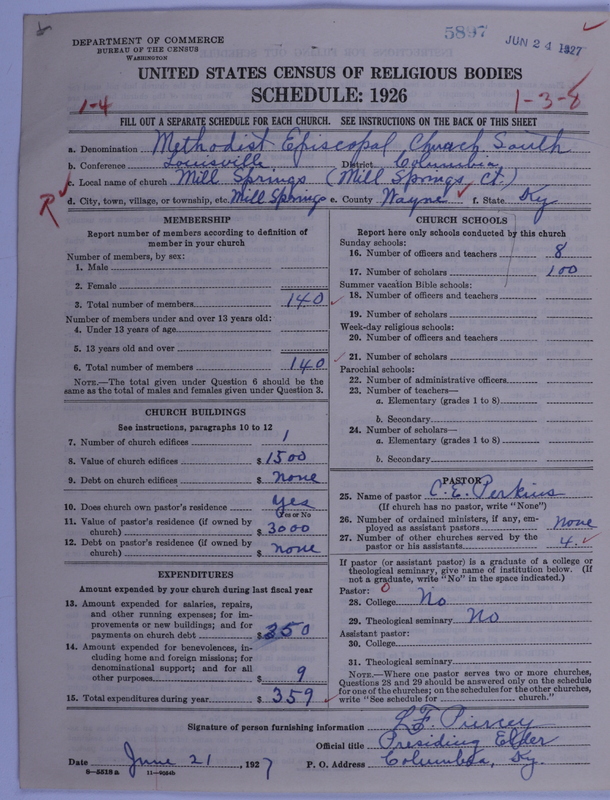 5897
JUN 24 1927
DEPARTMENT OF COMMERCE
BUREAU OF THE CENSUS
WASHINGTON
UNITED STATES CENSUS OF RELIGIOUS BODIES
SCHEDULE: 1926
1-4
1-3-8
FILL OUT A SEPARATE SCHEDULE FOR EACH CHURCH. SEE INSTRUCTIONS ON THE BACK OF THIS SHEET
a. Denomination Methodist Episcopal Church South
b. Conference Louisville District Columbia
c. Local name of church Mill Springs (Mill Springs Ct.)
R
d. City, town, village, or township, etc. Mill Springs e. County Wayne f. State Ky
MEMBERSHIP
Report number of members according to definition of
member in your church
Number of members, by sex:
1. Male
2. Female
3. Total number of members 140
Number of members under and over 13 years old:
4. Under 13 years of age
5. 13 years old and over
6. Total number of members 140
NOTE.—The total given under Question 6 should be the
same as the total of males and females given under Question 3.
CHURCH BUILDINGS
See instructions, paragraphs 10 to 12
7. Number of church edifices 1
8. Value of church edifices $1500
9. Debt on church edifices $ none
10. Does church own pastor's residence yes
Yes or No
11. Value of pastor's residence (if owned by
church) $3000
12. Debt on pastor's residence (if owned by
church) $ none
EXPENDITURES
Amount expended by your church during last fiscal year
13. Amount expended for salaries, repairs,
and other running expenses; for im-
provements or new buildings; and for
payments on church debt $350
14. Amount expended for benevolences, in-
cluding home and foreign missions; for
denominational support; and for all
other purposes $ 9
15. Total expenditures during year $359
CHURCH SCHOOLS
Report here only schools conducted by this church
Sunday schools:
16. Number of officers and teachers 8
17. Number of scholars 100
Summer vacation Bible schools:
18. Number of officers and teachers
19. Number of scholars
Week-day religious schools:
20. Number of officers and teachers
21. Number of scholars
Parochial schools:
22. Number of administrative officers
23. Number of teachers—
a. Elementary (grades 1 to 8)
b. Secondary
24. Number of scholars—
a. Elementary (grades 1 to 8)
b. Secondary
PASTOR
25. Name of pastor C. E. Perkins
(If church has no pastor, write "None")
26. Number of ordained ministers, if any, em-
ployed as assistant pastors none
27. Number of other churches served by the
pastor or his assistants 4
If pastor (or assistant pastor) is a graduate of a college or
theological seminary, give name of institution below. (If
not a graduate, write "No" in the space indicated.)
Pastor: 0
28. College No
29. Theological seminary No
Assistant pastor:
30. College
31. Theological seminary
NOTE.—Where one pastor serves two or more churches,
Questions 28 and 29 should be answered only on the schedule
for one of the churches; on the schedules for the other churches,
write "See schedule for church."
Signature of person furnishing information L. F. Piercey
Official title Presiding Elder
Date June 21, 1927 P. O. Address Columbia, Ky.
8-5518 a 11-9084b